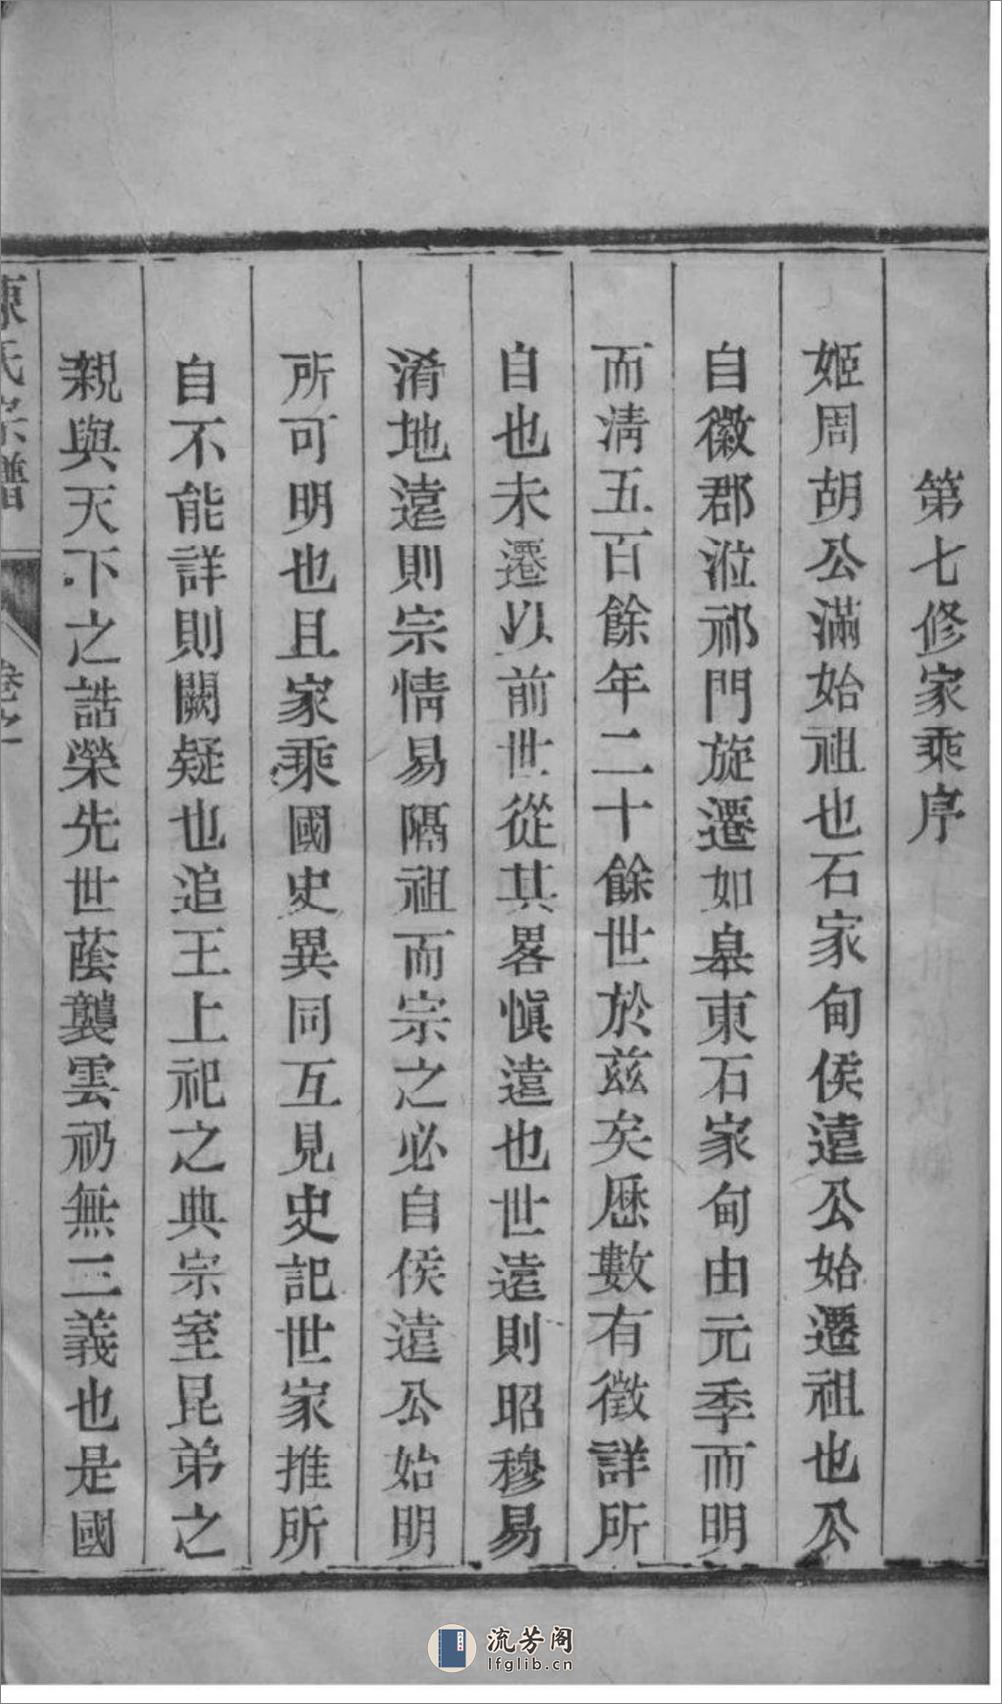 第七修家乘序
姬周胡公滿始祖也石家甸侯遠公始遷祖也公
自徽郡涖祁門旋遷如皋東石家甸由元季而明
而淸五百餘年二十餘世於茲矣歷數有徵詳所
自也未遷以前世從其畧愼遠也世遠則昭穆易
淆地遠則宗情易隔祖而宗之必自侯遠公始明
所可明也且家乘國史異同互見史記世家推所
自不能詳則闕疑也追王上祀之典宗室昆弟之
親與天下之誥榮先世蔭襲雲礽無三義也是國
陳氏宗譜
卷之一
流芳阁
lfglib.cn